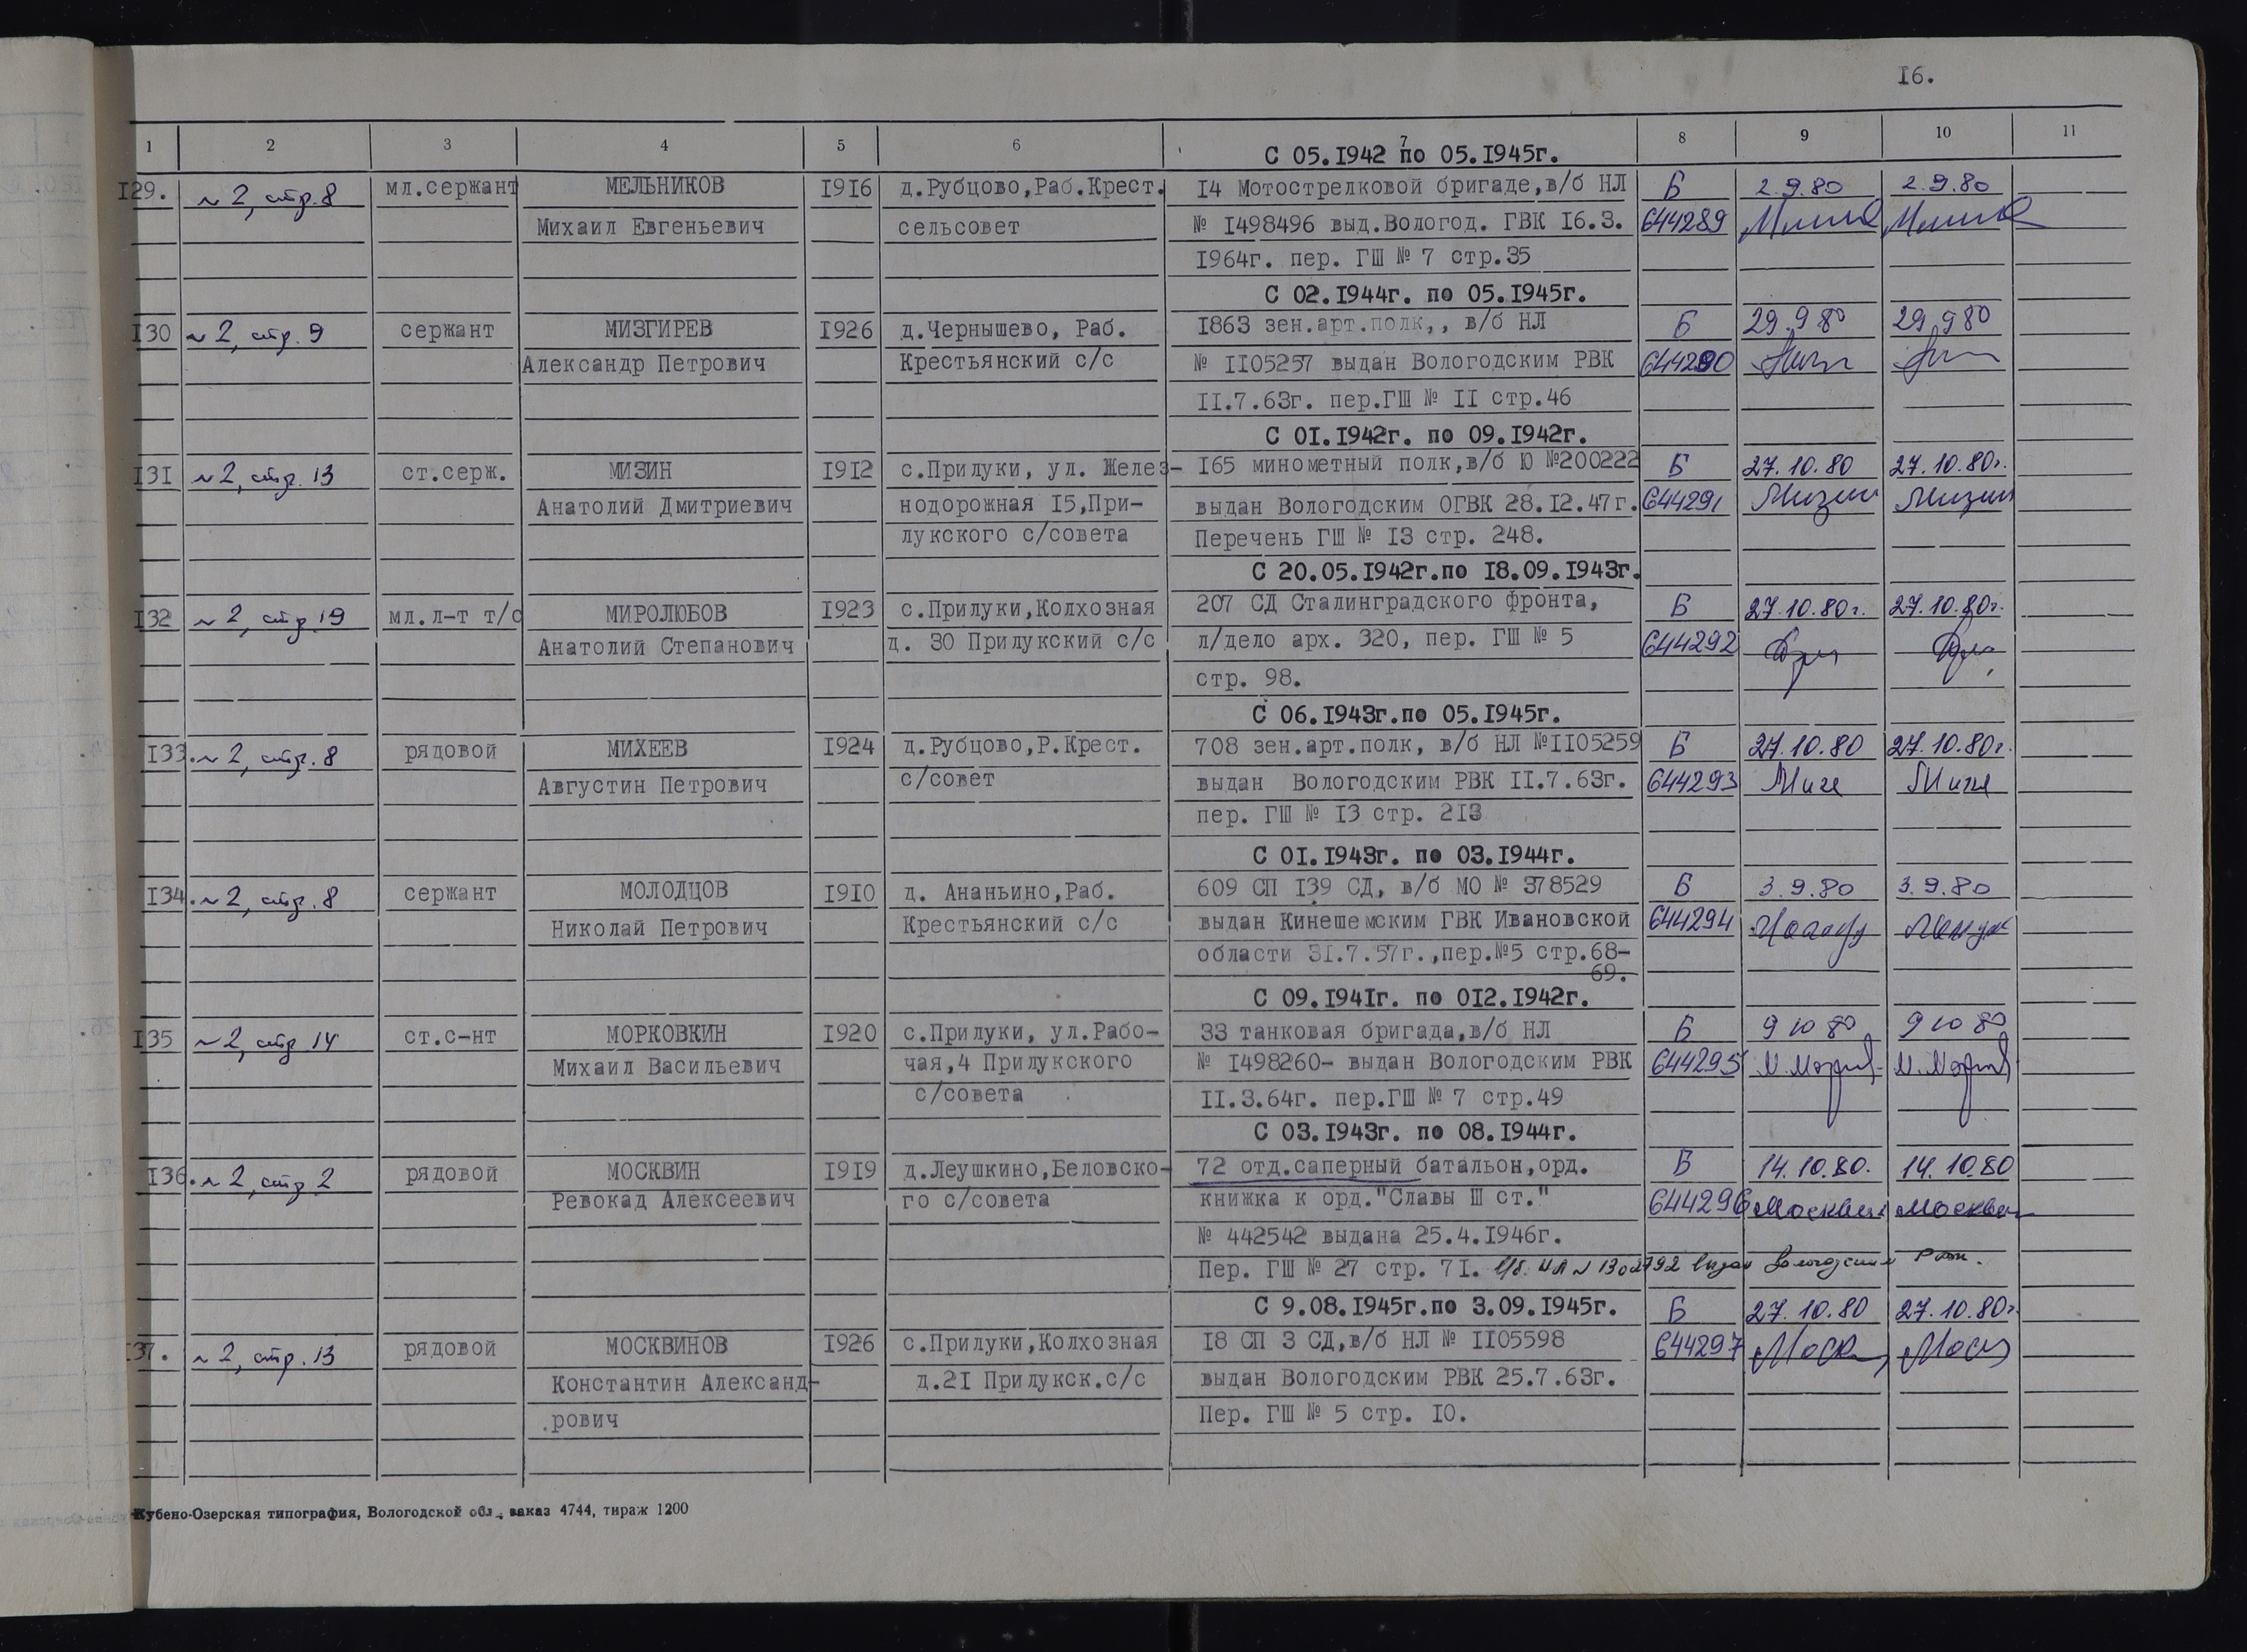 16.
1 2 3 4 5 6 7 8 9 10 11
С 05.1942 по 05.1945г.
129. № 2, стр. 8 мл.сержант МЕЛЬНИКОВ 1916 д.Рубцово,Раб.Крест. 14 Мотострелковой бригаде,в/б НЛ Б 2.9.80 2.9.80
Михаил Евгеньевич сельсовет № 1498496 выд.Вологод. ГВК 16.3. 644289
1964г. пер. ГШ № 7 стр.35
С 02.1944г. по 05.1945г.
130 № 2, стр. 9 сержант МИЗГИРЕВ 1926 д.Чернышево, Раб. 1863 зен.арт.полк,, в/б НЛ Б 29.9 80 29.9 80
Александр Петрович Крестьянский с/с № 1105257 выдан Вологодским РВК 644290
11.7.63г. пер.ГШ № 11 стр.46
С 01.1942г. по 09.1942г.
131 № 2, стр. 13 ст.серж. МИЗИН 1912 с.Прилуки, ул. Желез- 165 минометный полк,в/б Ю №200222 Б 27.10.80 27.10.80г.
Анатолий Дмитриевич нодорожная 15,При- выдан Вологодским ОГВК 28.12.47г. 644291 Мизин Мизин
лукского с/совета Перечень ГШ № 13 стр. 248.
С 20.05.1942г.по 18.09.1943г.
132 № 2, стр 19 мл.л-т т/с МИРОЛЮБОВ 1923 с.Прилуки,Колхозная 207 СД Сталинградского фронта, Б 27.10.80г. 27.10.80г.
Анатолий Степанович д. 30 Прилукский с/с л/дело арх. 320, пер. ГШ № 5 644292
стр. 98.
С 06.1943г.по 05.1945г.
133. № 2, стр. 8 рядовой МИХЕЕВ 1924 д.Рубцово,Р.Крест. 708 зен.арт.полк, в/б НЛ №1105259 Б 27.10.80 27.10.80г.
Августин Петрович с/совет выдан Вологодским РВК 11.7.63г. 644293
пер. ГШ № 13 стр. 213
С 01.1943г. по 03.1944г.
134. № 2, стр. 8 сержант МОЛОДЦОВ 1910 д. Ананьино,Раб. 609 СП 139 СД, в/б МО № 378529 Б 3.9.80 3.9.80
Николай Петрович Крестьянский с/с выдан Кинешемским ГВК Ивановской 644294
области 31.7.57г.,пер.№5 стр.68-
69.
С 09.1941г. по 012.1942г.
135 № 2, стр 14 ст.с-нт МОРКОВКИН 1920 с.Прилуки, ул.Рабо- 33 танковая бригада,в/б НЛ Б 9 10 80 9 10 80
Михаил Васильевич чая,4 Прилукского № 1498260- выдан Вологодским РВК 644295
с/совета 11.3.64г. пер.ГШ № 7 стр.49
С 03.1943г. по 08.1944г.
136. № 2, стр 2 рядовой МОСКВИН 1919 д.Леушкино,Беловско- 72 отд.саперный батальон,орд. Б 14.10.80. 14.10.80
Ревокад Алексеевич го с/совета книжка к орд."Славы Ш ст." 644296 Москвин Москвин
№ 442542 выдана 25.4.1946г.
Пер. ГШ № 27 стр. 71. У/б. НЛ № 1302792 выдан Вологодским
С 9.08.1945г.по 3.09.1945г. Б 27.10.80 27.10.80г.
137. № 2, стр. 13 рядовой МОСКВИНОВ 1926 с.Прилуки,Колхозная 18 СП 3 СД,в/б НЛ № 1105598 644297
Константин Александ- д.21 Прилукск.с/с выдан Вологодским РВК 25.7.63г.
рович Пер. ГШ № 5 стр. 10.
Кубено-Озерская типография, Вологодской обл., заказ 4744, тираж 1200